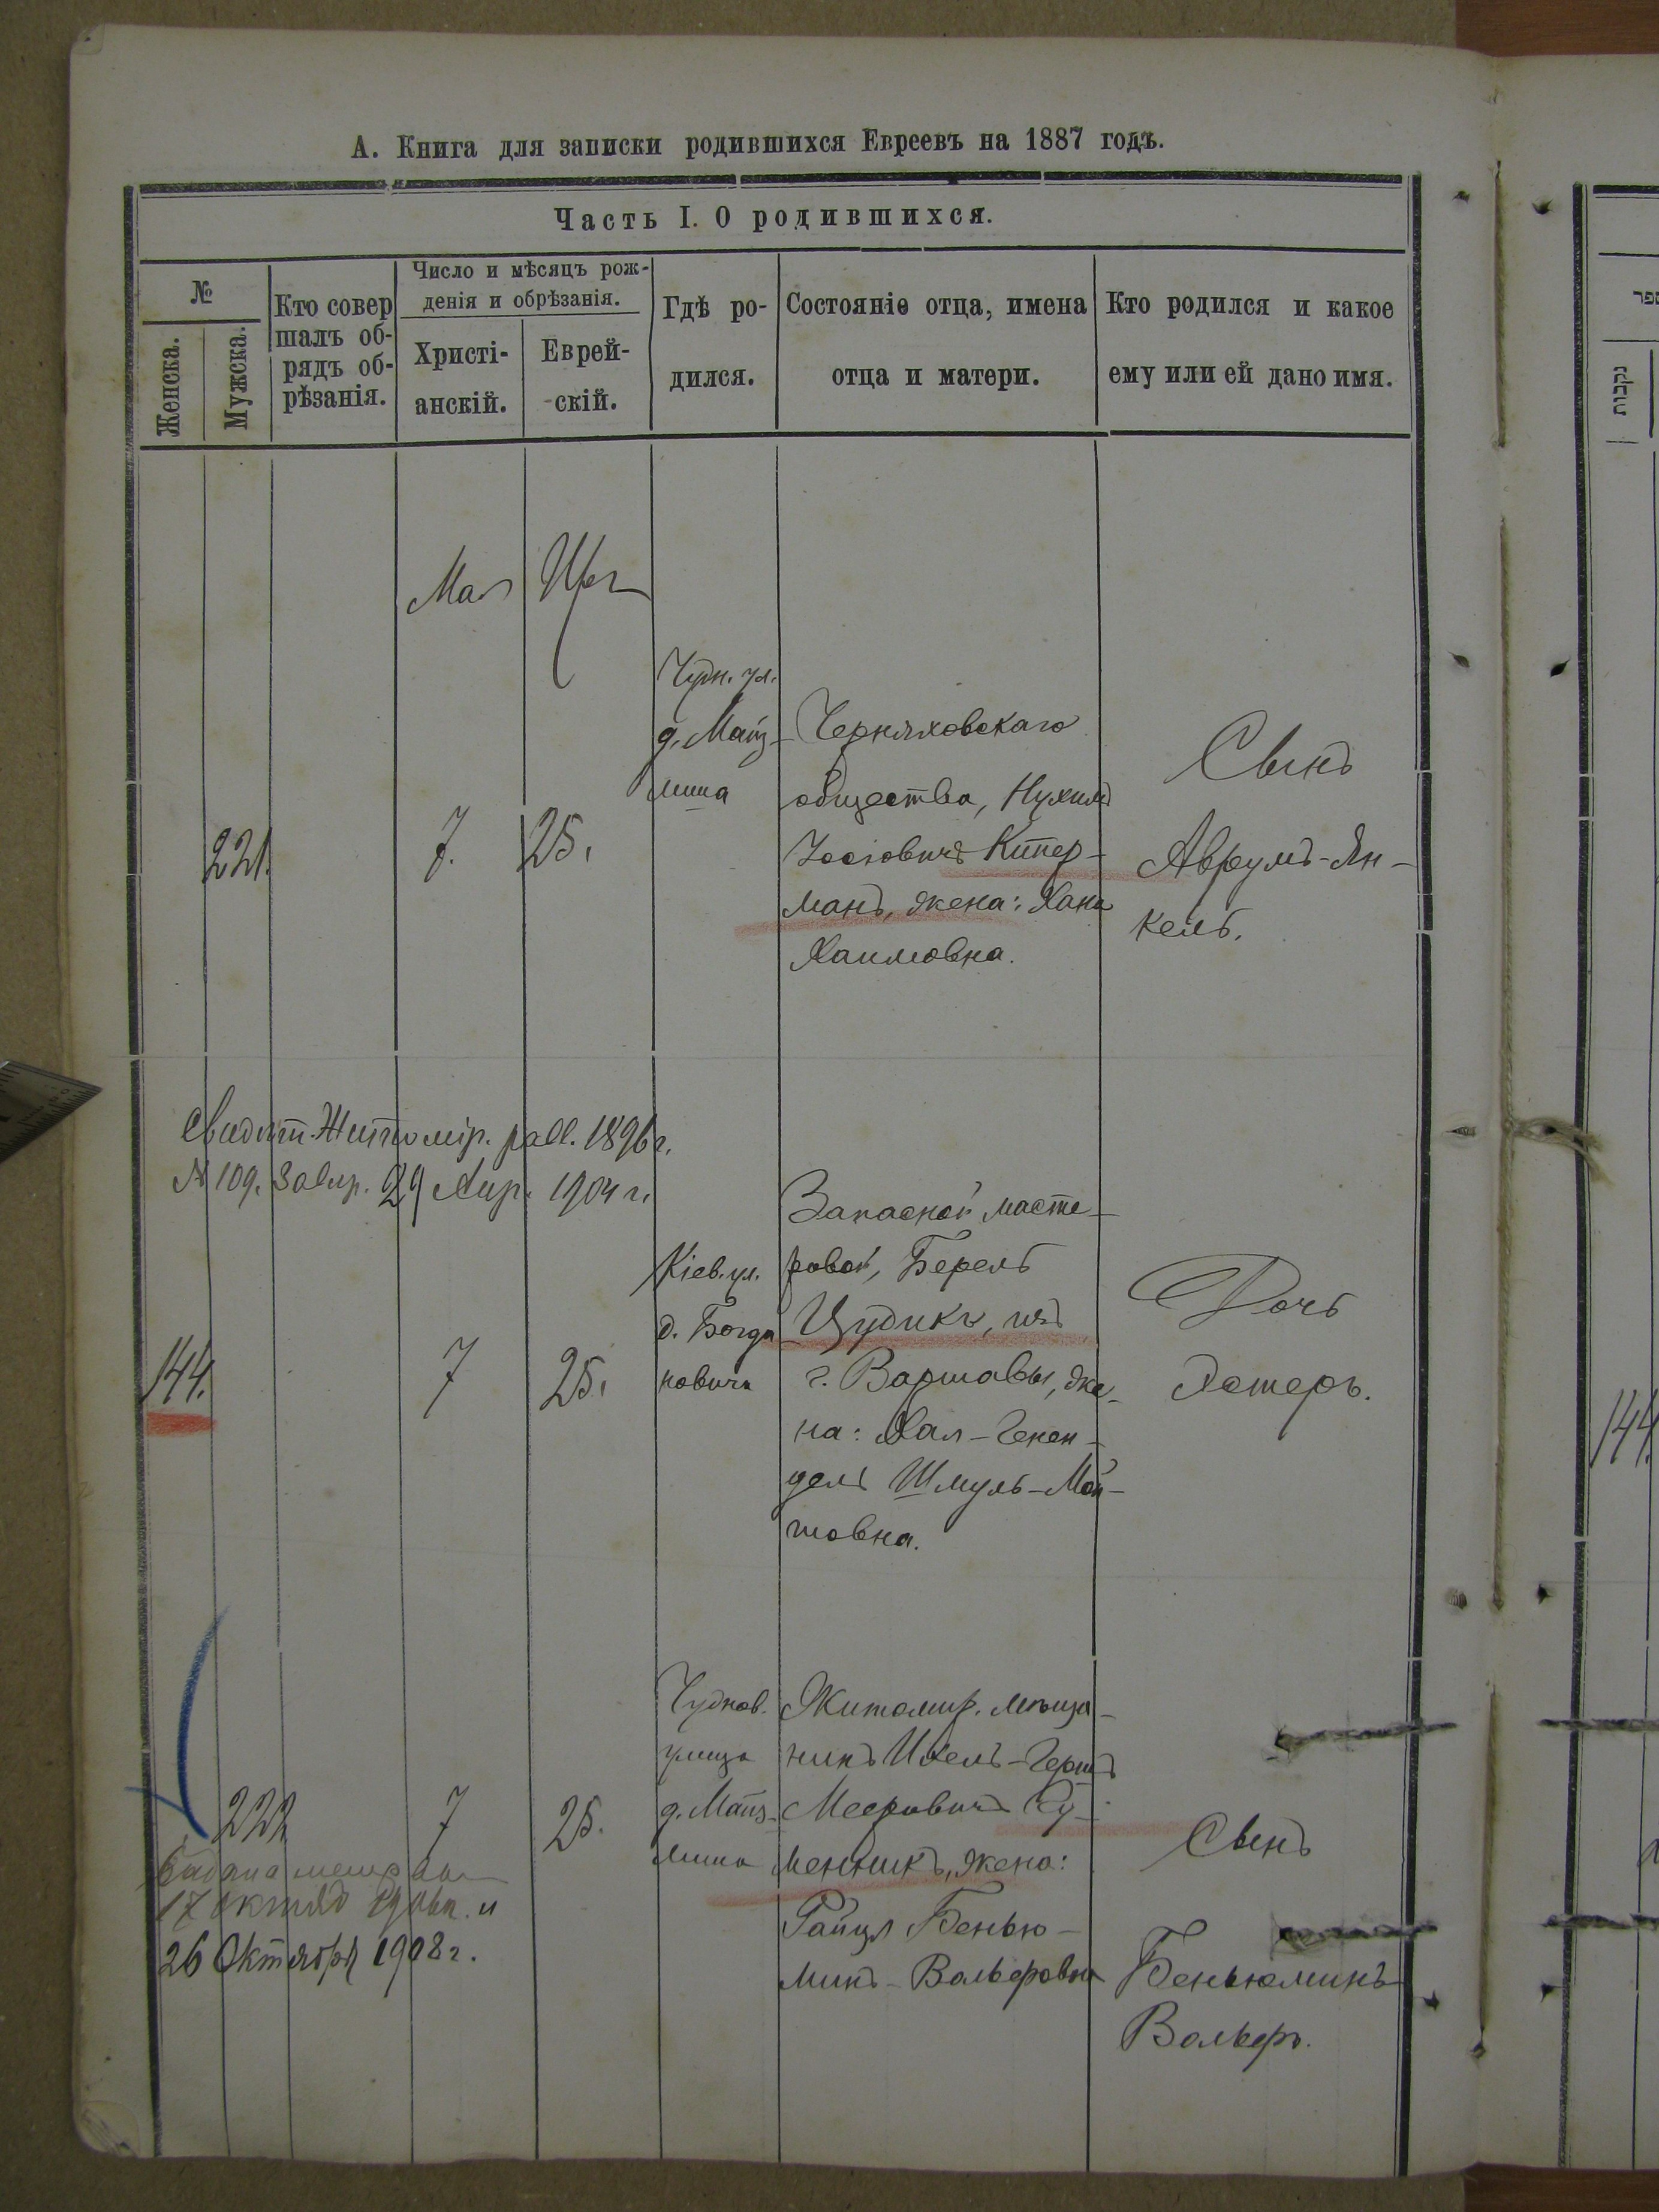 А. Книга для записки родившихся Евреевъ на 1887 годъ.
Часть I. О родившихся.
№
Женска.
Мужска.
Кто совер
шалъ об-
рядъ об-
рѣзанія.
Число и мѣсяцъ рож-
денія и обрѣзанія.
Христі-
анскій.
Еврей-
скій.
Гдѣ ро-
дился.
Состояніе отца, имена
отца и матери.
Кто родился и какое
ему или ей дано имя.
נקבות
Мая
221.
7.
25.
Чудн. ул.
д. Майз-
лиша
Черняховскаго
общества, Нухимъ
Іосіовичъ Кипер-
манъ, жена: Хана
Хаимовна.
Сынъ
Аврумъ-Ян-
кель.
Свидѣт. Житомір. 1896 г.
№ 109. 29 Апр. 1904 г.
144.
7
25.
Кіев. ул.
д. Богда
новича
Запасной масте-
ровой, Берель
Цудикъ, изъ
г. Варшавы, же-
на: Хая-Генен-
дель Шмуль-Мой-
шовна.
Дочь
Эстеръ.
144.
222
7
25.
Чуднов.
улица
д. Майз-
лиша
Житомир. мѣща-
нинъ Ихель-Гершъ
Мееровичъ Гу-
менникъ, жена:
Райзл Бенью-
минъ-Вольфовна
Сынъ
Беньюминъ
Вольфъ.
17 октяб 1906 г. и
26 Октября 1908 г.